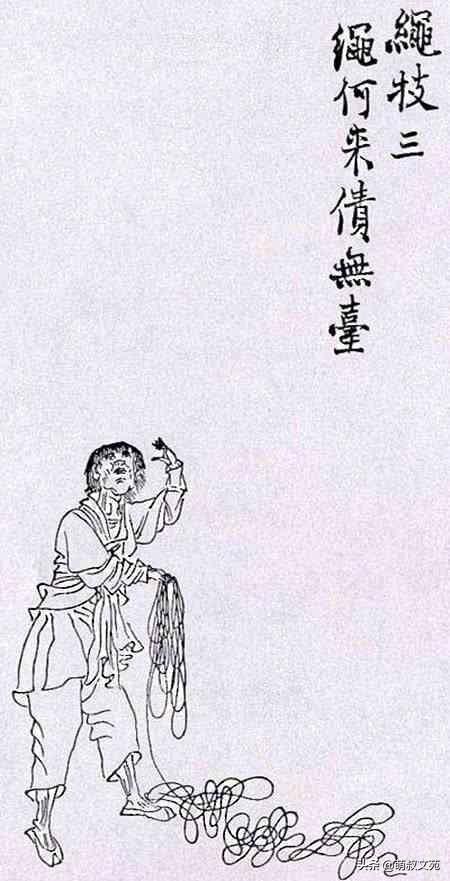 繩技三
繩何来債無臺
头条 @萌叔文苑